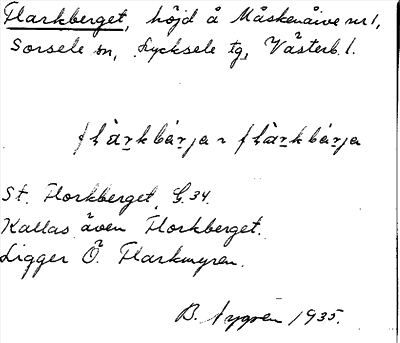 Flarkberget, höjd å Måskenåive nr 1,
Sorsele sn, Lycksele tg, Västerb. l.
flàrkbárja ~ flàrkbárja
St. Florkberget, G. 34.
Kallas även Florkberget.
Ligger Ö. Flarkmyren.
B. Nygren 1935.